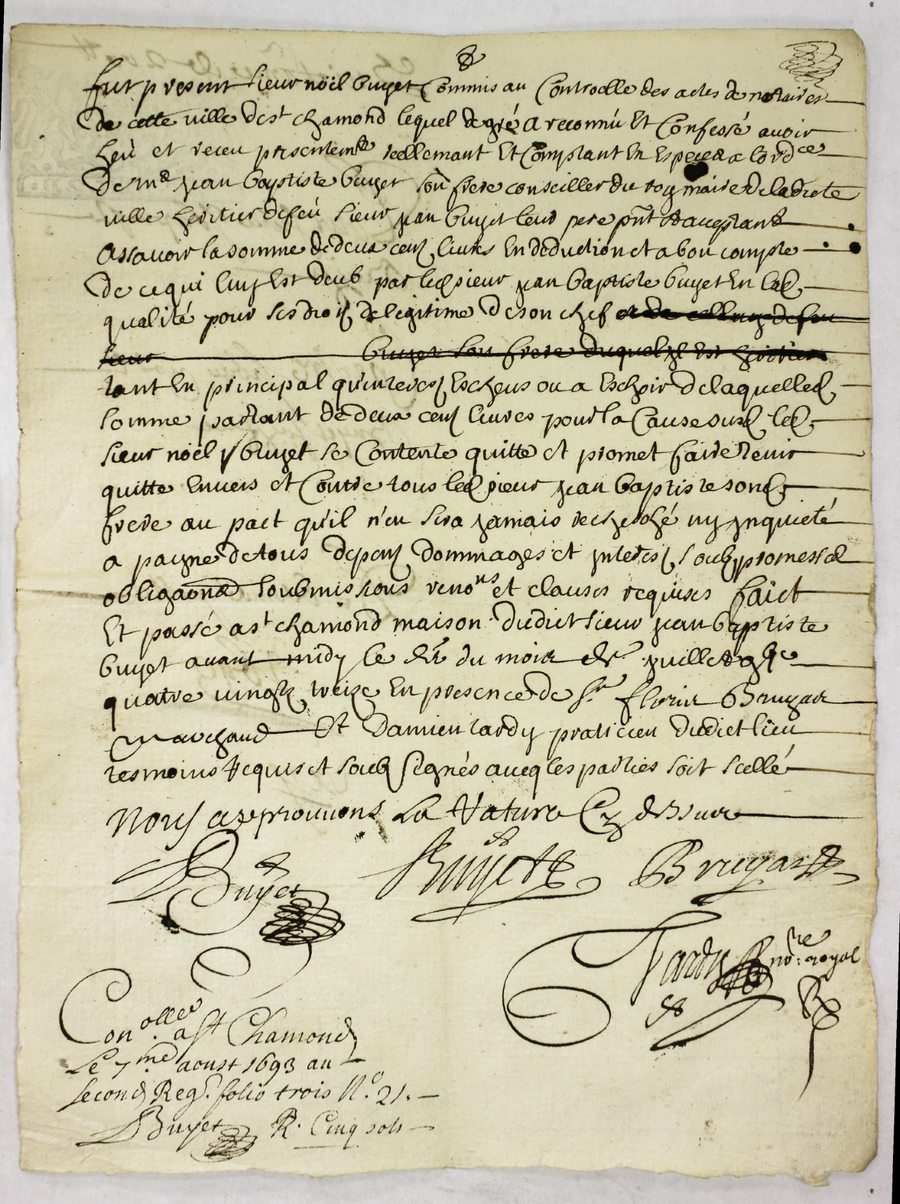 fut present sieur noël buyet Commis au Controlle des actes de notaires
de cette ville de st chamond lequel de gré a reconnu Et Confessé avoir
heü et receu presentemt reellemant Et Comptant En Especes
De mr jean baptiste buyet son frere conseiller du roy maire de ladicte
ville heritier de feü sieur jean buyet leur pere pnt et acceptant
assavoir la somme de deux cens livres En deduction et a bon compte
De ce qui luy Est deub par led sieur jean baptiste buyet En lad
qualité pour ses droits de legitime de son chef et de celluy de feu
sieur buyet son frere duquel jl Est heritier
tant En principal qu'interests Escheus ou a Eschoir De laquelle
somme partant de deux cens livres pour la Cause susd led
sieur noël buyet se Contente quitte et promet faire tenir
quitte Envers et Contre tous led sieur jean baptiste sond
frere au pact qu'il n'en sera jamais recherché ny jnquieté
a payne de tous depens dommages et jnterests soubz promesse
obligaons soubmissions renons et clauses requises faict
Et passé a st chamond maison dudict sieur jean baptiste
buyet avant midy le du mois de juillet
quatre vingts treize En presence de sr floris Bruyas
Marchand Et Damien tardy praticien dudict lieu
tesmoins requis et soubz signés avecq les parties soit scellé
Nous approuvons La rature Cy dessus
Buyet Buyet Bruyas
Tardy nore royal
Conollé a st Chamond
Le 7me aoust 1693 au
second Reg. folio trois No. 21.
Buyet R. Cinq sols